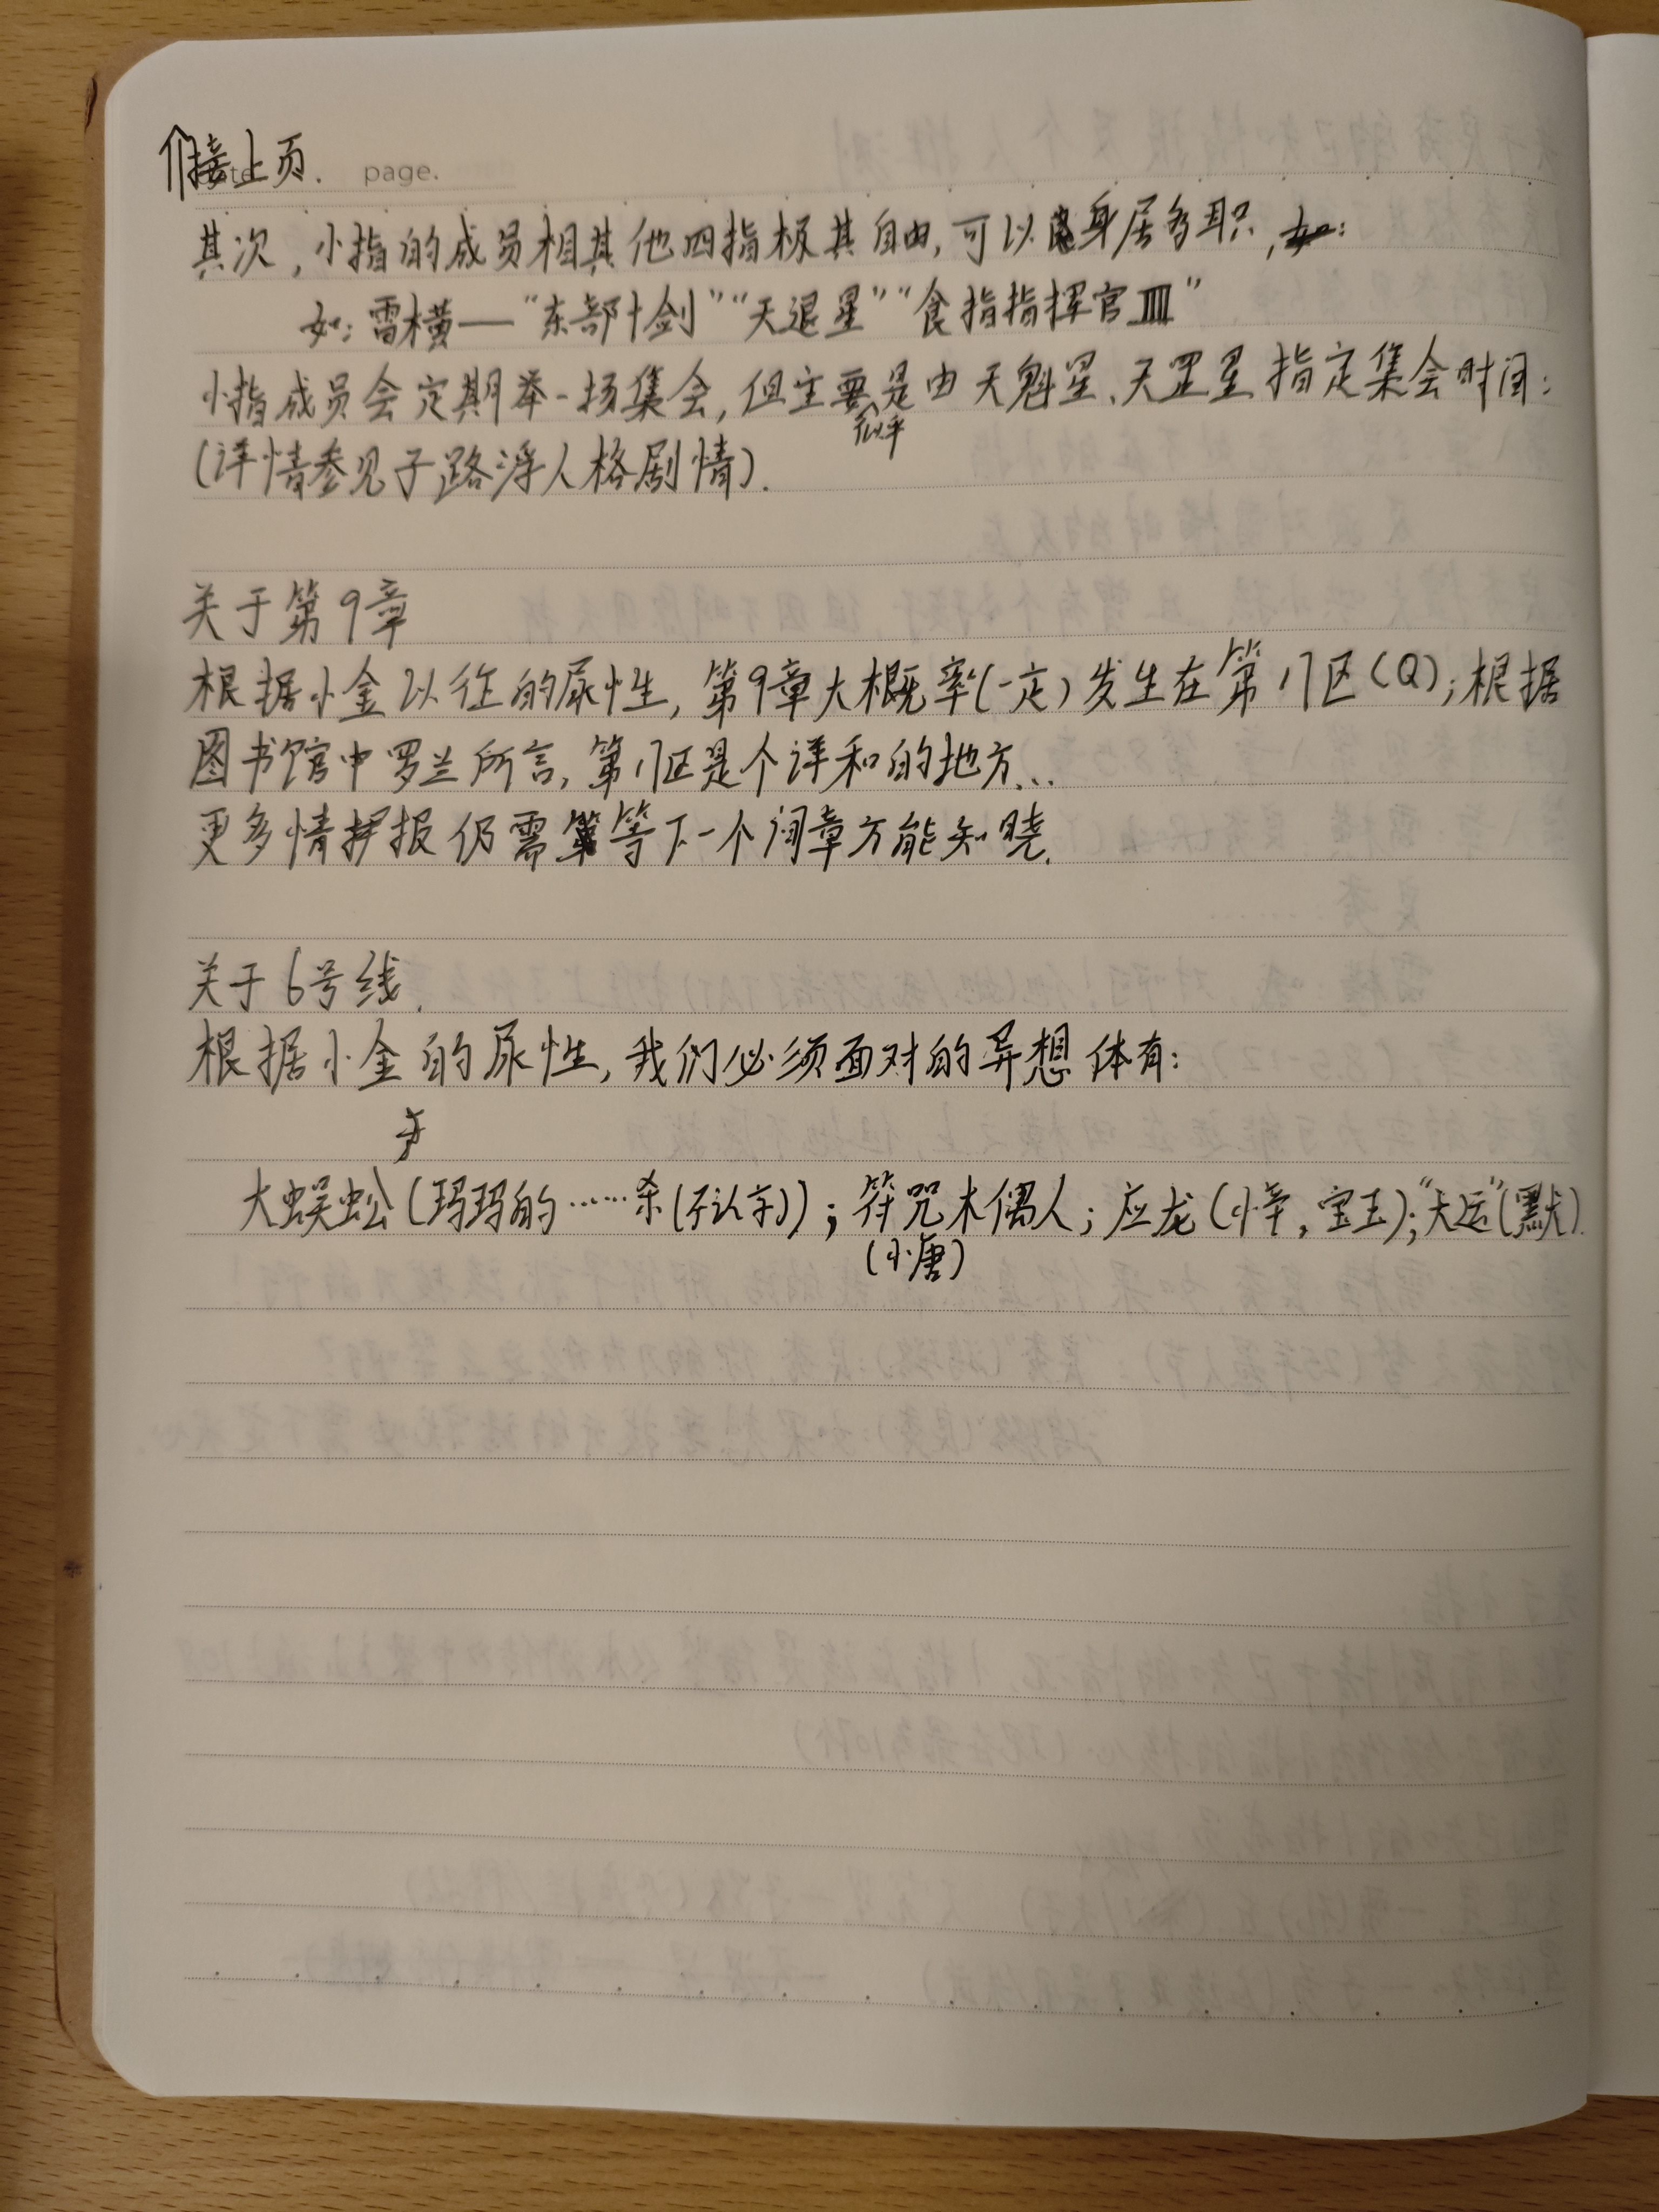 ↑接上页.
page.
其次,小指的成员相其他四指极其自由,可以身居多职,如:
如:雷横——“东部十剑”“天退星”“食指指挥官Ⅲ”
小指成员会定期举一场集会,但主要是由天魁星、天罡星指定集会时间:
似乎
(详情参见子路浮人格剧情).
关于第9章
根据小金以往的尿性,第9章大概率(一定)发生在第17区(Q);根据
图书馆中罗兰所言,第17区是个详和的地方...
更多情报仍需等下一个间章方能知晓.
关于6号线.
根据小金的尿性,我们必须面对的异想体有:
大蜈蚣(玛玛的……杀(不认字));符咒木偶人;应龙(小辛,宝玉);“大运”(默).
(小唐)